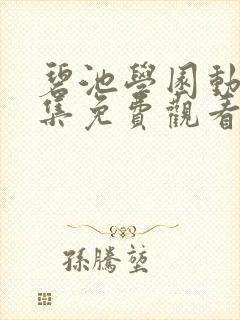 碧池學園動
集免費觀看
孫騰堃